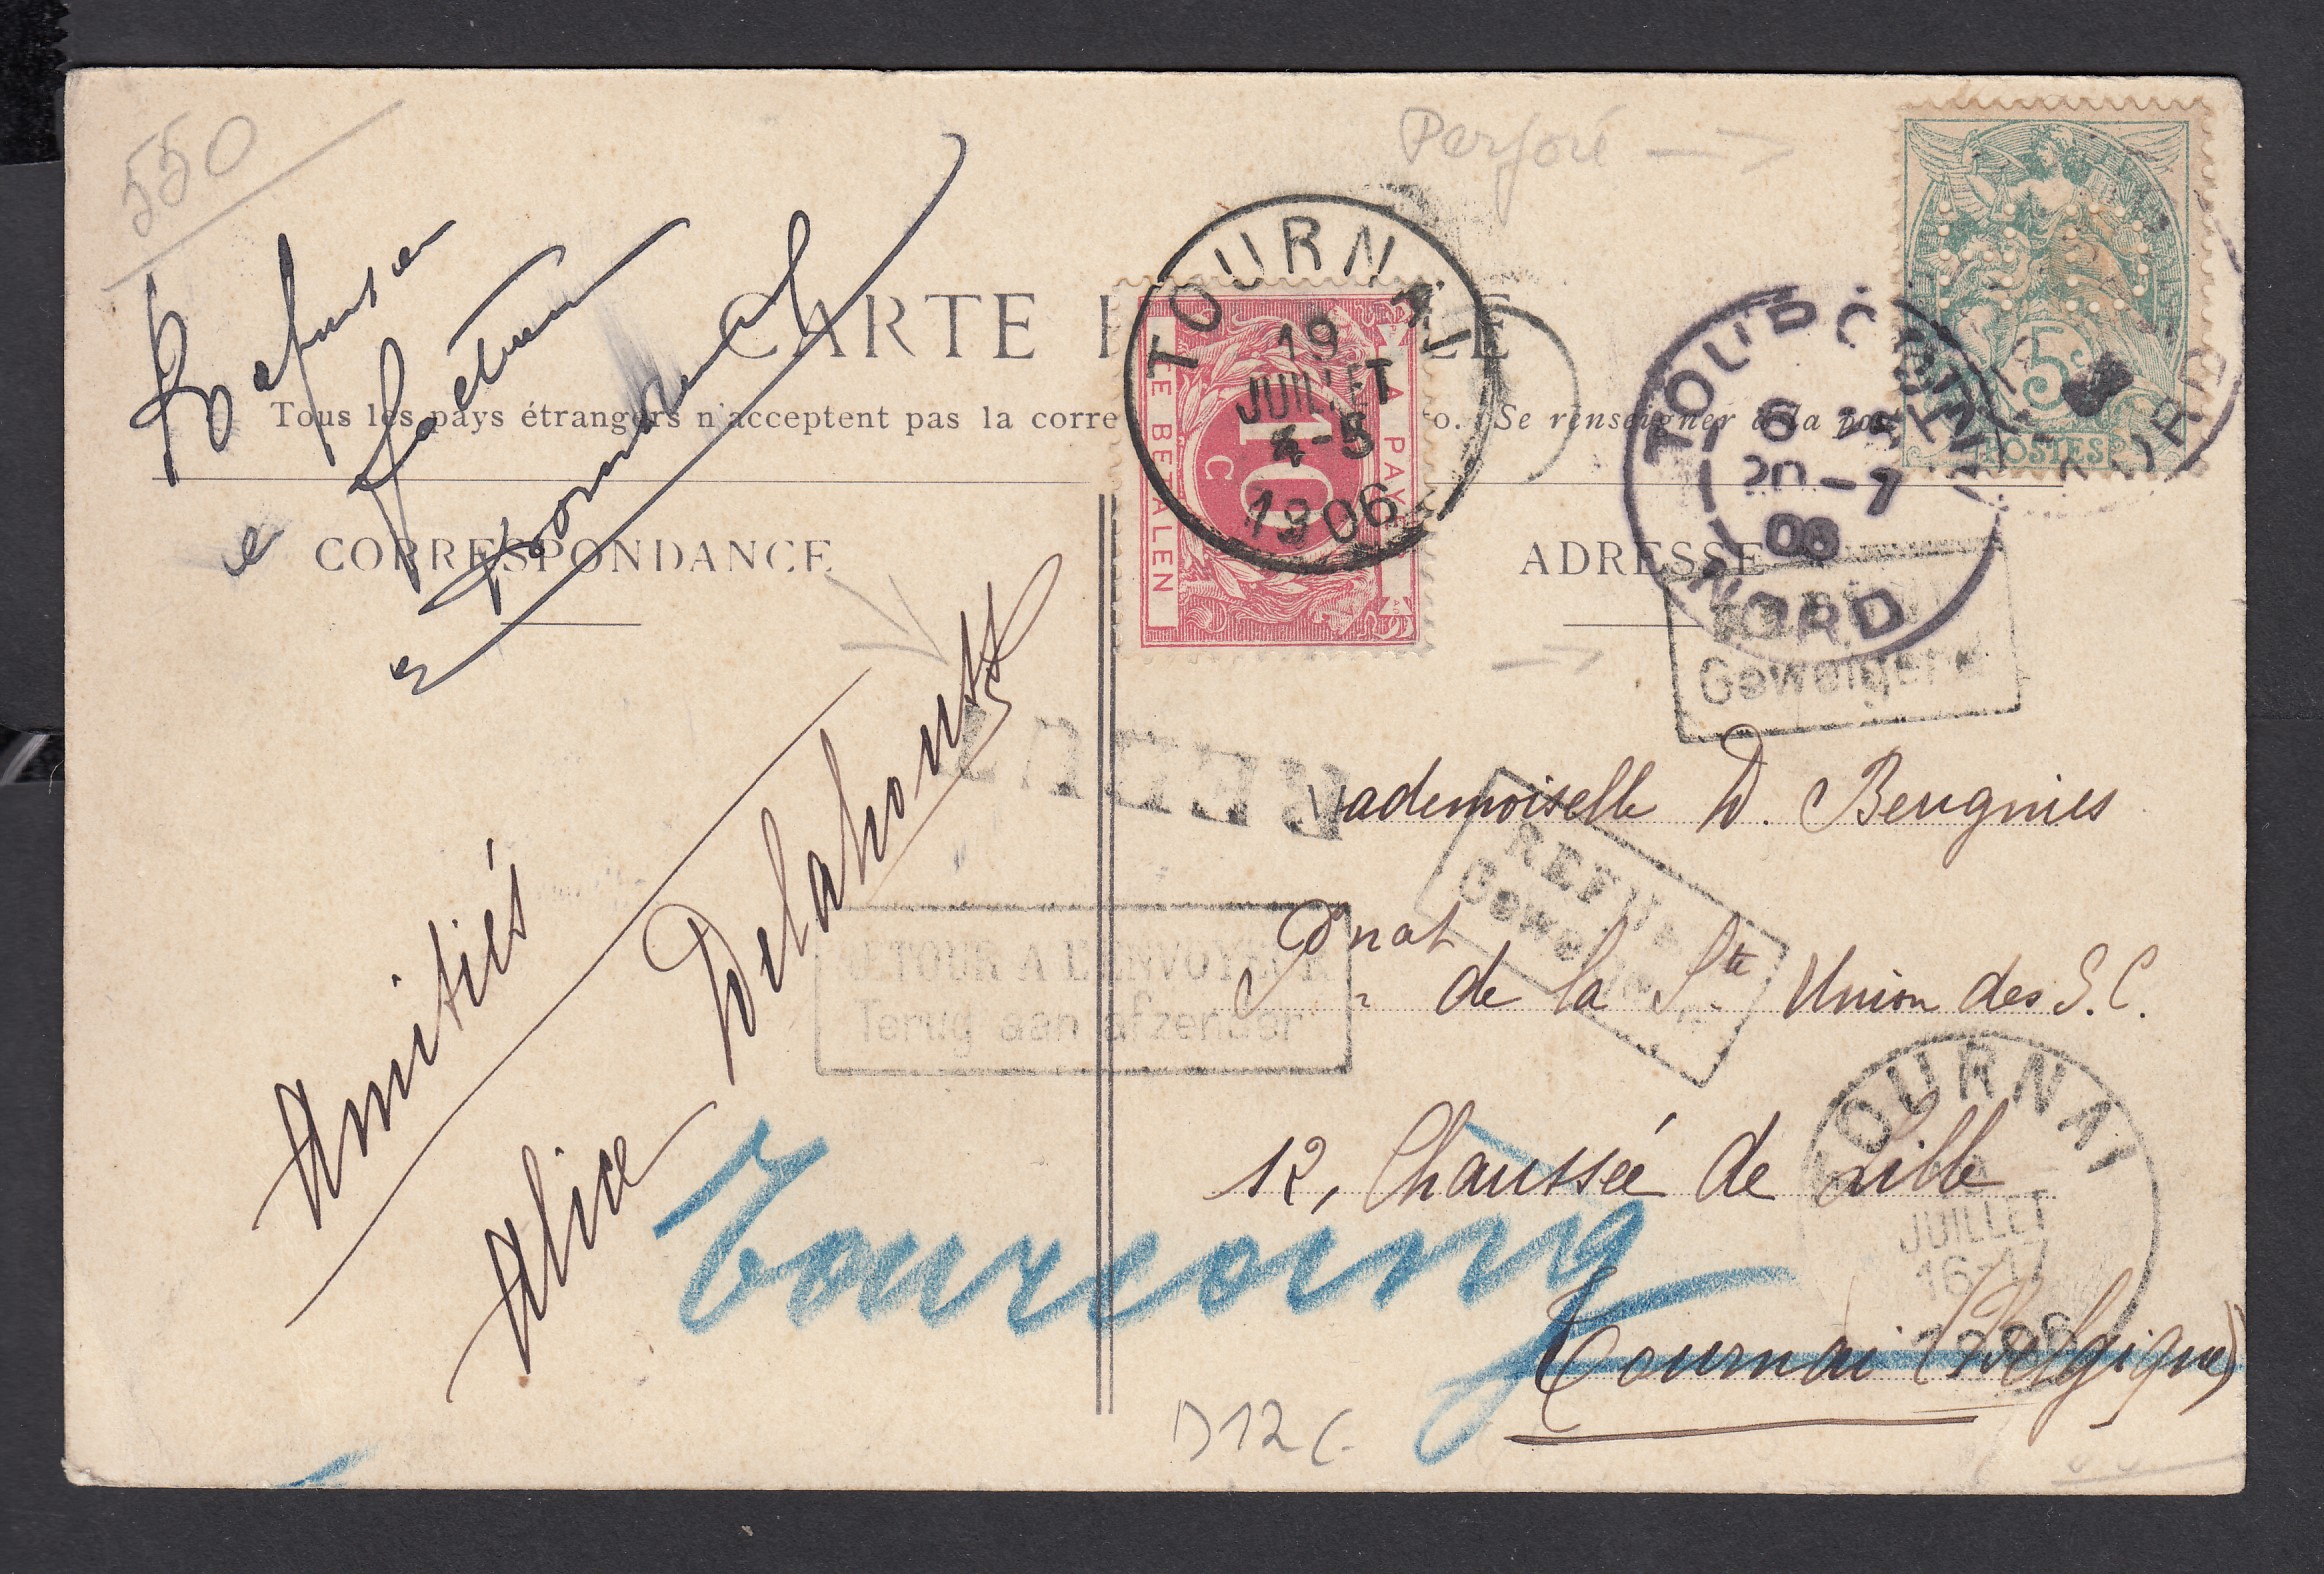 550
Perforé
CARTE
Tous les pays étrangers n'acceptent pas la corre
o. Se renseigner à la
CORRESPONDANCE
ADRESSE
TOURNAI
19
JUILLET
1906
A PAYER
TE BETALEN
10
C
TOURCOING
NORD
5c
POSTES
Geweigerd
REBUT
REFUS
RETOUR A L'ENVOYEUR
Terug aan afzender
Amitiés
Alice Delahoutte
Mademoiselle D. Beugnies
de la Ste Union des S. C.
12, Chaussée de Lille
Tournai (Belgique)
Tourcoing
TOURNAI
JUILLET
16-17
1906
D12C